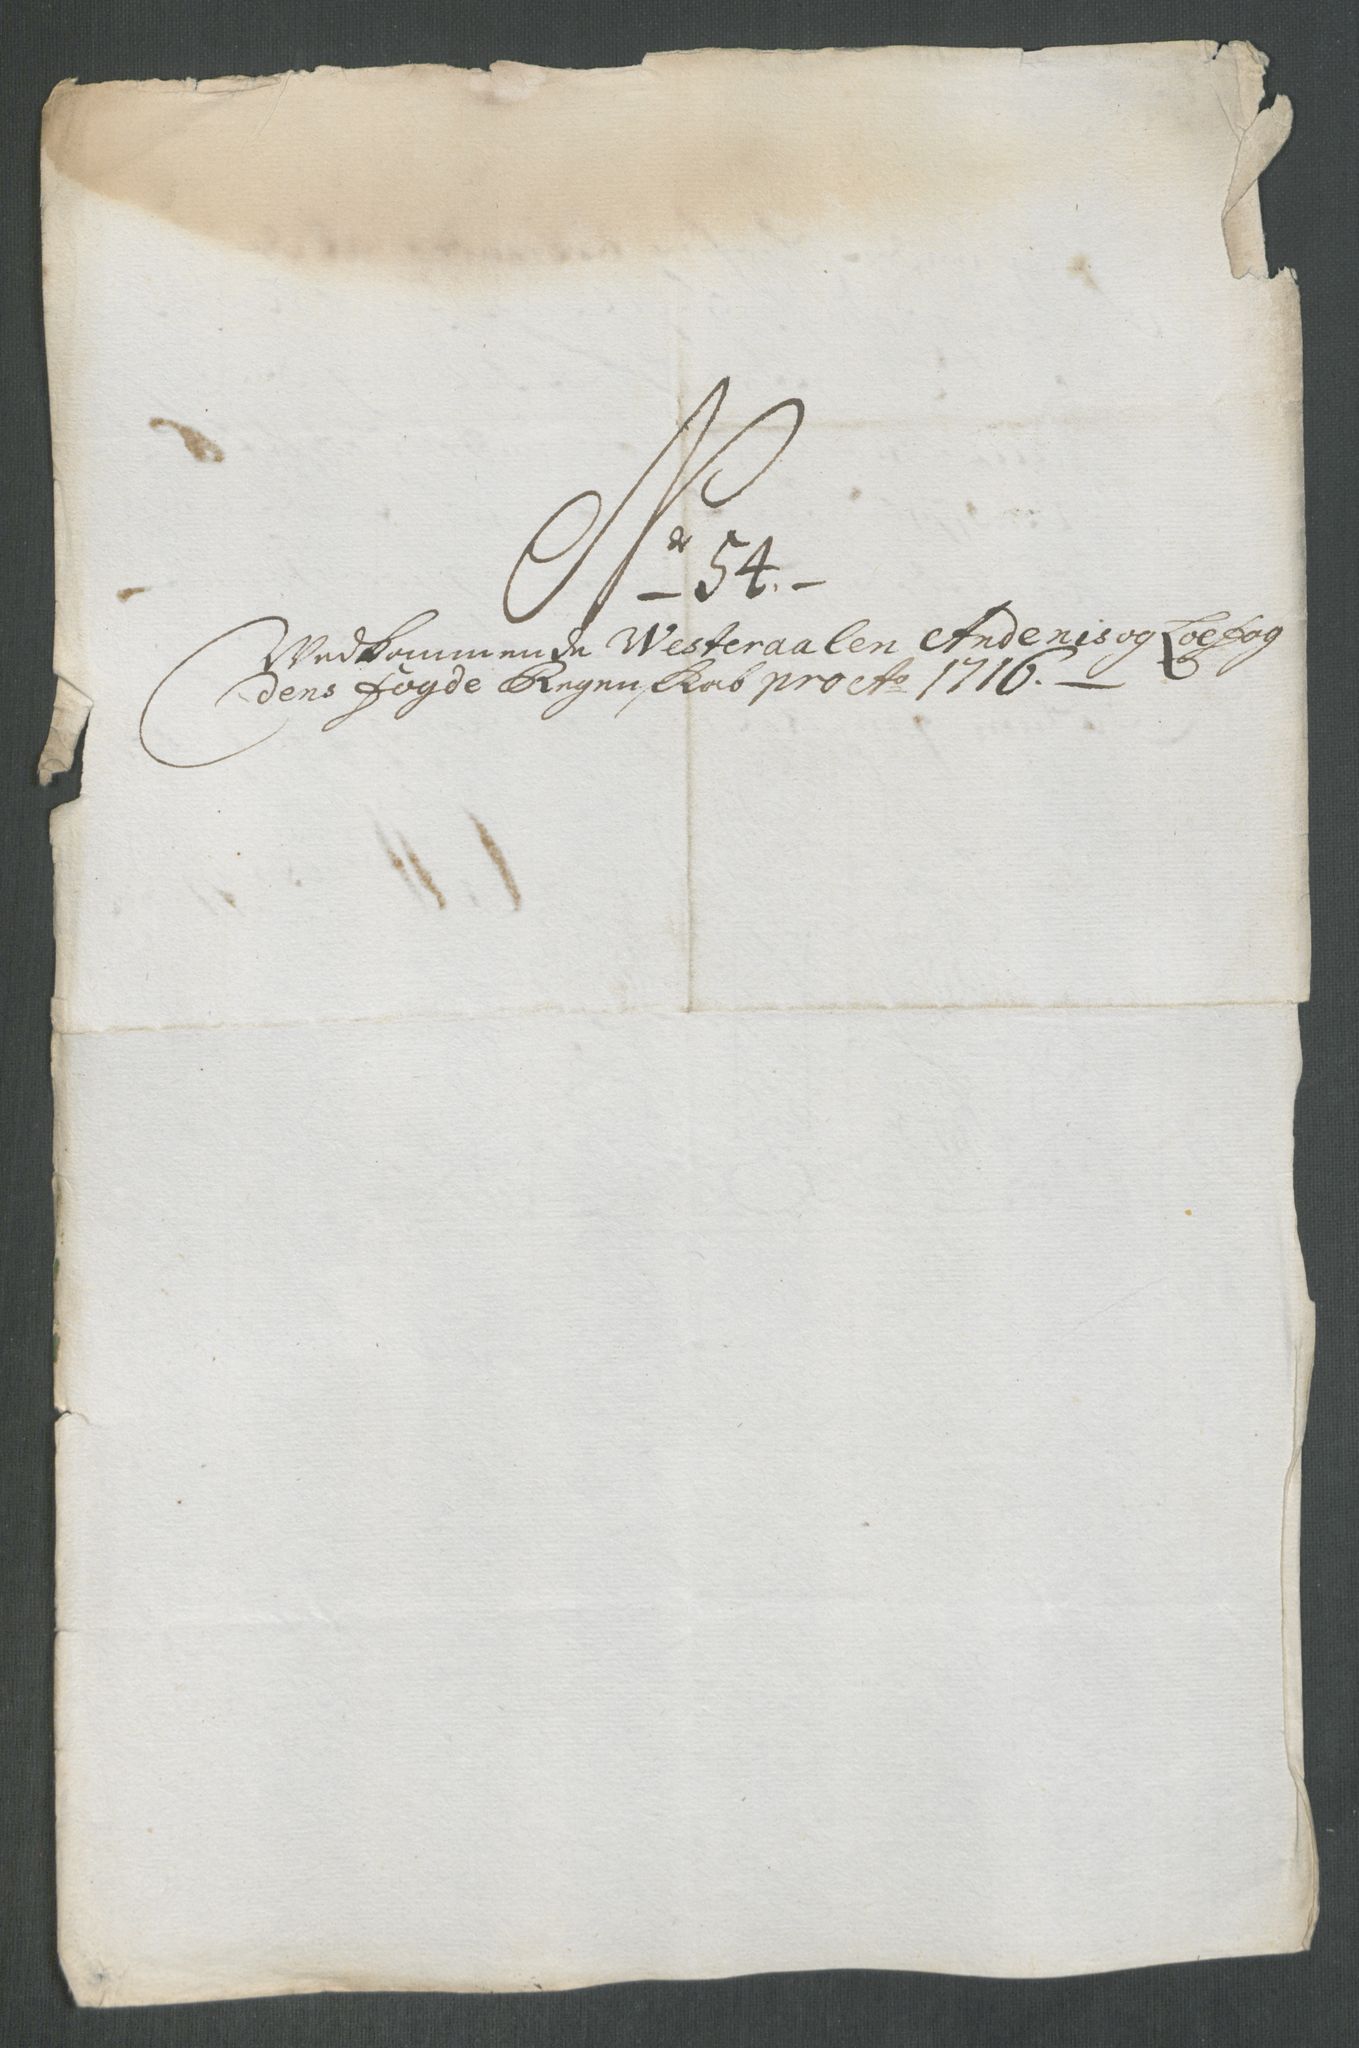 Nr
54.
Vedkommende Westeraalen Andenis og Loefog
dens fogde Regenskab pro Ao 1716.